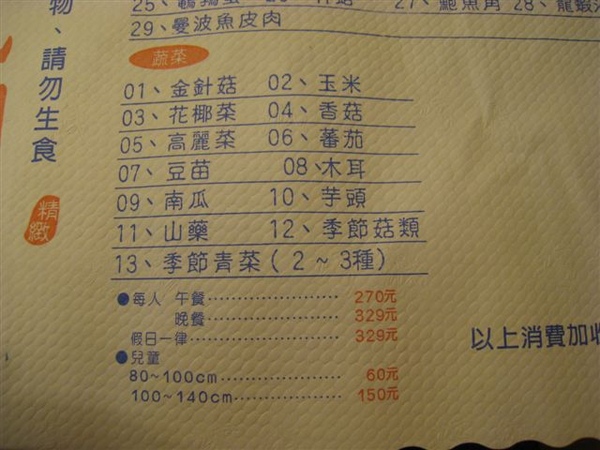 29、曼波魚皮肉
蔬菜
01、金針菇 02、玉米
03、花椰菜 04、香菇
05、高麗菜 06、蕃茄
07、豆苗 08、木耳
09、南瓜 10、芋頭
11、山藥 12、季節菇類
13、季節青菜(2~3種)
●每人 午餐 270元
晚餐 329元
假日一律 329元
●兒童
80~100cm 60元
100~140cm 150元
物、請勿生食
精緻
以上消費加收